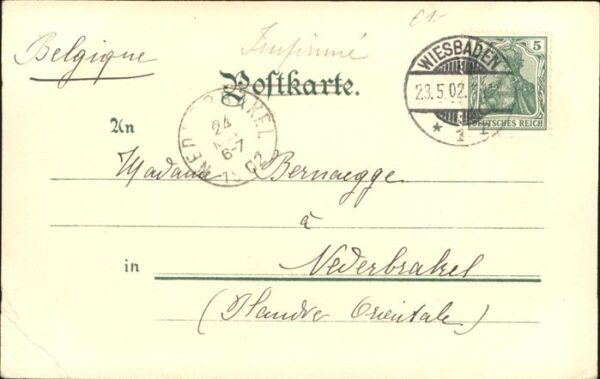 Belgique
Imprimé
Postkarte.
WIESBADEN
23.5.02.
* 1
5
DEUTSCHES REICH
BRAKEL
24
6-7
An
Madame Bernaegge
à
in Nederbrakel
(Flandre Orientale)